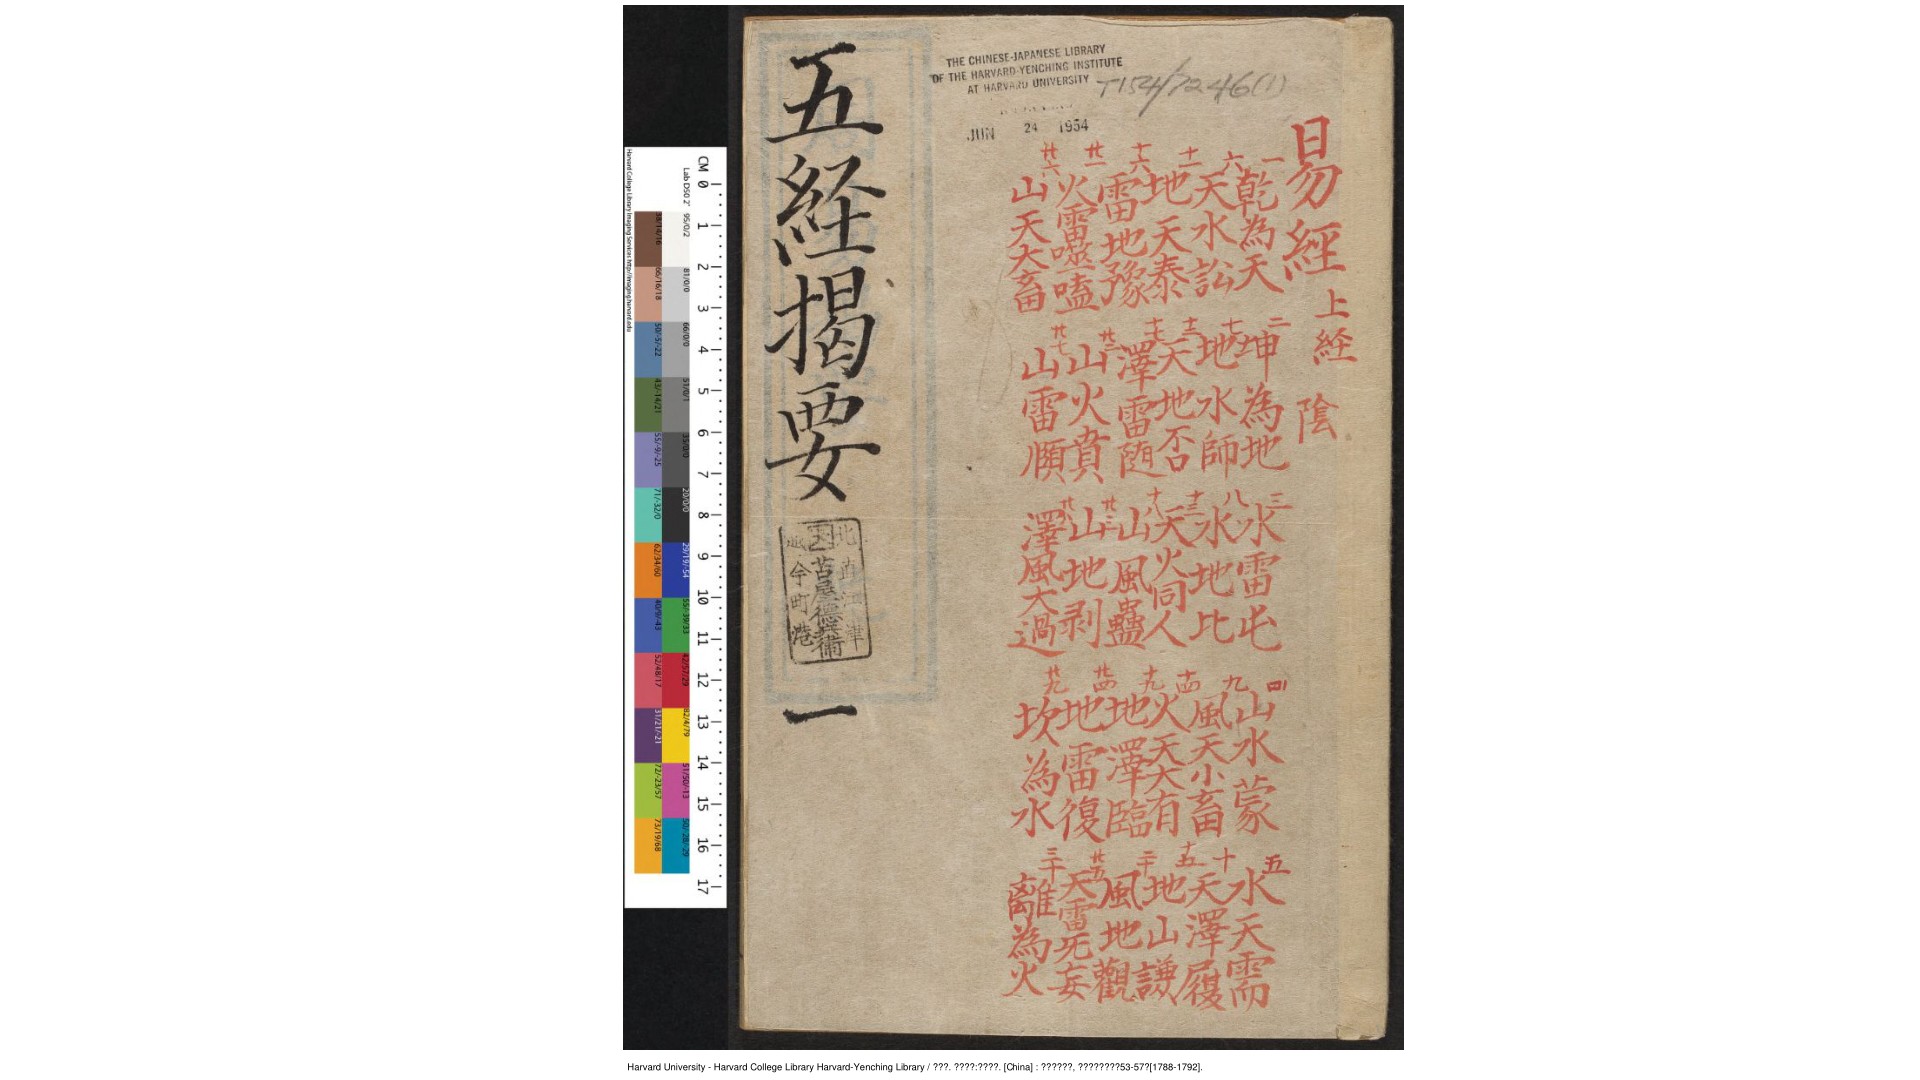 THE CHINESE-JAPANESE LIBRARY
OF THE HARVARD-YENCHING INSTITUTE
AT HARVARD UNIVERSITY
T154/7246(1)
JUN 24 1954
易經 上経 陰
一 乾為天
二 坤為地
三 水雷屯
四 山水蒙
五 水天需
六 天水訟
七 地水師
八 水地比
九 風天小畜
十 天澤履
十一 地天泰
十二 天地否
十三 天火同人
十四 火天大有
十五 地山謙
十六 雷地豫
十七 澤雷随
十八 山風蠱
十九 地澤臨
二十 風地觀
廿一 火雷噬嗑
廿二 山火賁
廿三 山地剥
廿四 地雷復
廿五 天雷无妄
廿六 山天大畜
廿七 山雷頤
廿八 澤風大過
廿九 坎為水
三十 離為火
五経揭要
一
北 津
古屋德兵衛
今町港
CM 0 1 2 3 4 5 6 7 8 9 10 11 12 13 14 15 16 17
Harvard College Library Imaging Services
Harvard University - Harvard College Library Harvard-Yenching Library / ???. ????:????. [China] : ??????, ????????53-57?[1788-1792].